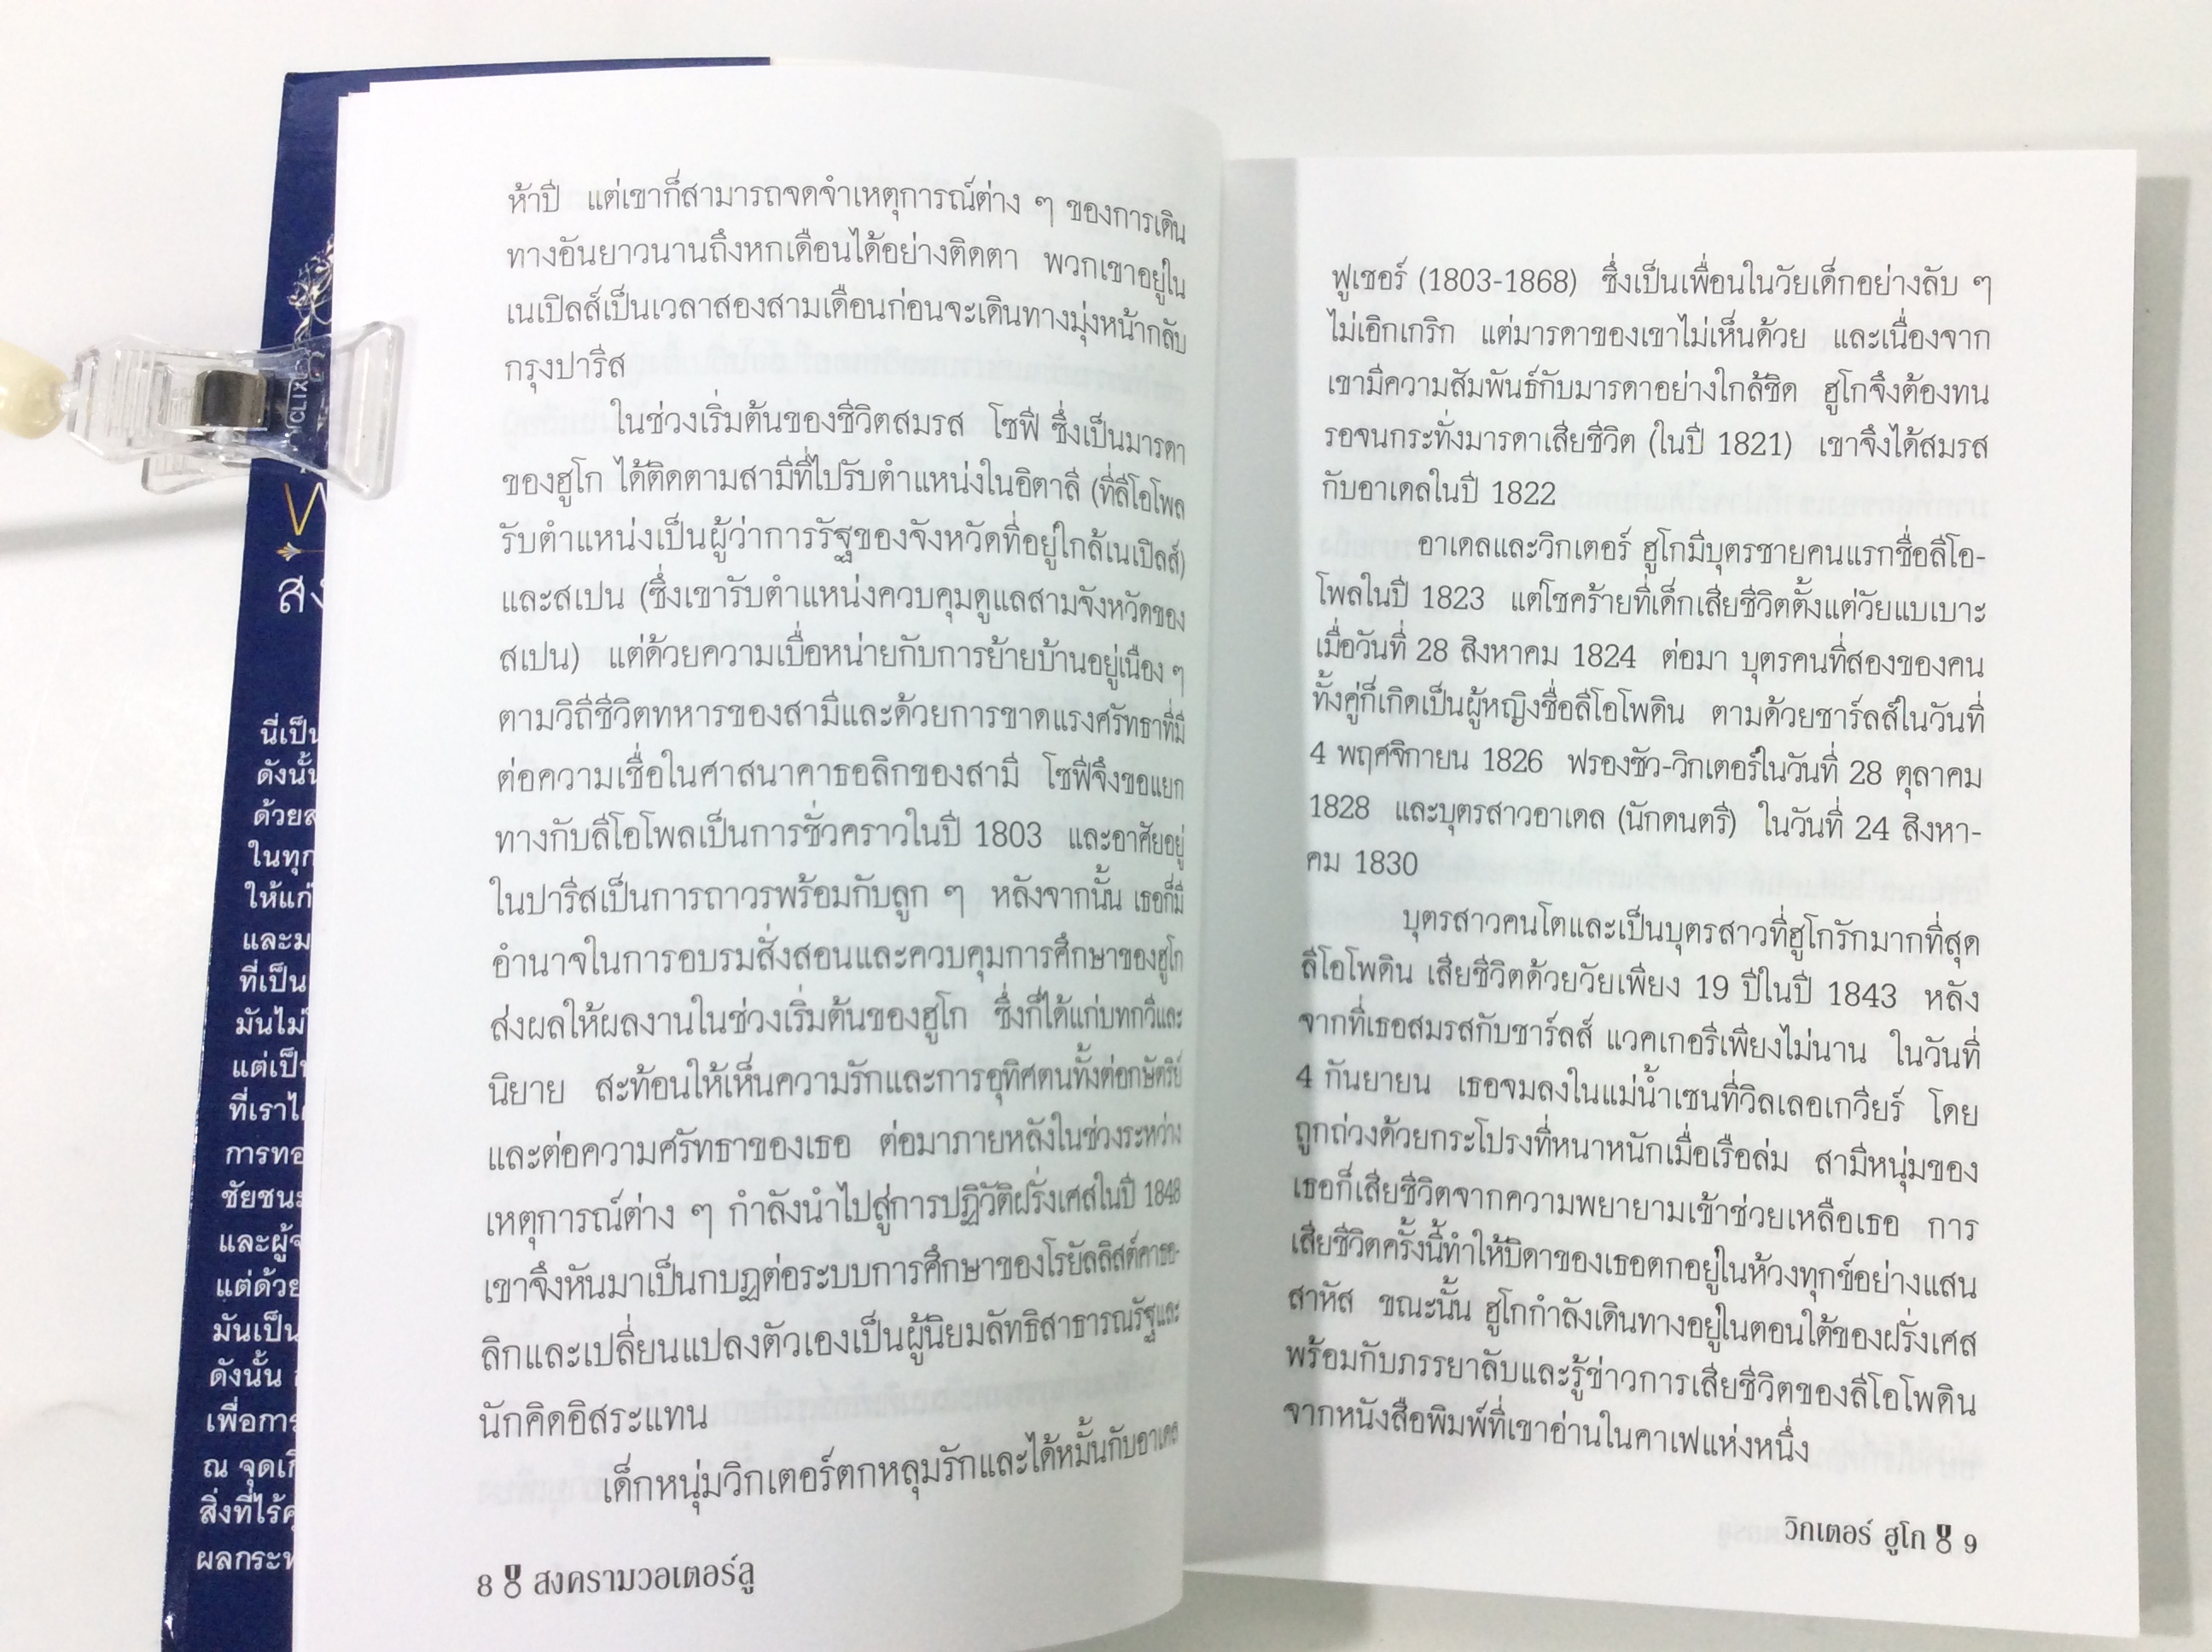 ห้าปี แต่เขาก็สามารถจดจำเหตุการณ์ต่าง ๆ ของการเดิน
ทางอันยาวนานถึงหกเดือนได้อย่างติดตา พวกเขาอยู่ใน
เนเปิลส์เป็นเวลาสองสามเดือนก่อนจะเดินทางมุ่งหน้ากลับ
กรุงปารีส
ในช่วงเริ่มต้นของชีวิตสมรส โซฟี ซึ่งเป็นมารดา
ของฮูโก ได้ติดตามสามีที่ไปรับตำแหน่งในอิตาลี (ที่ลีโอโพล
รับตำแหน่งเป็นผู้ว่าการรัฐของจังหวัดที่อยู่ใกล้เนเปิลส์)
และสเปน (ซึ่งเขารับตำแหน่งควบคุมดูแลสามจังหวัดของ
สเปน) แต่ด้วยความเบื่อหน่ายกับการย้ายบ้านอยู่เนือง ๆ
ตามวิถีชีวิตทหารของสามีและด้วยการขาดแรงศรัทธาที่มี
ต่อความเชื่อในศาสนาคาธอลิกของสามี โซฟีจึงขอแยก
ทางกับลีโอโพลเป็นการชั่วคราวในปี 1803 และอาศัยอยู่
ในปารีสเป็นการถาวรพร้อมกับลูก ๆ หลังจากนั้น เธอก็มี
อำนาจในการอบรมสั่งสอนและควบคุมการศึกษาของฮูโก
ส่งผลให้ผลงานในช่วงเริ่มต้นของฮูโก ซึ่งก็ได้แก่บทกวีและ
นิยาย สะท้อนให้เห็นความรักและการอุทิศตนทั้งต่อกษัตริย์
และต่อความศรัทธาของเธอ ต่อมาภายหลังในช่วงระหว่าง
เหตุการณ์ต่าง ๆ กำลังนำไปสู่การปฏิวัติฝรั่งเศสในปี 1848
เขาจึงหันมาเป็นกบฏต่อระบบการศึกษาของโรยัลลิสต์คาธอ-
ลิกและเปลี่ยนแปลงตัวเองเป็นผู้นิยมลัทธิสาธารณรัฐและ
นักคิดอิสระแทน
เด็กหนุ่มวิกเตอร์ตกหลุมรักและได้หมั้นกับอาเดล
8 สงครามวอเตอร์ลู
ฟูเชอร์ (1803-1868) ซึ่งเป็นเพื่อนในวัยเด็กอย่างลับ ๆ
ไม่เอิกเกริก แต่มารดาของเขาไม่เห็นด้วย และเนื่องจาก
เขามีความสัมพันธ์กับมารดาอย่างใกล้ชิด ฮูโกจึงต้องทน
รอจนกระทั่งมารดาเสียชีวิต (ในปี 1821) เขาจึงได้สมรส
กับอาเดลในปี 1822
อาเดลและวิกเตอร์ ฮูโกมีบุตรชายคนแรกชื่อลีโอ-
โพลในปี 1823 แต่โชคร้ายที่เด็กเสียชีวิตตั้งแต่วัยแบเบาะ
เมื่อวันที่ 28 สิงหาคม 1824 ต่อมา บุตรคนที่สองของคน
ทั้งคู่ก็เกิดเป็นผู้หญิงชื่อลีโอโพดิน ตามด้วยชาร์ลส์ในวันที่
4 พฤศจิกายน 1826 ฟรองซัว-วิกเตอร์ในวันที่ 28 ตุลาคม
1828 และบุตรสาวอาเดล (นักดนตรี) ในวันที่ 24 สิงหา-
คม 1830
บุตรสาวคนโตและเป็นบุตรสาวที่ฮูโกรักมากที่สุด
ลีโอโพดิน เสียชีวิตด้วยวัยเพียง 19 ปีในปี 1843 หลัง
จากที่เธอสมรสกับชาร์ลส์ แวคเกอรีเพียงไม่นาน ในวันที่
4 กันยายน เธอจมลงในแม่น้ำเซนที่วิลเลอเกวียร์ โดย
ถูกถ่วงด้วยกระโปรงที่หนาหนักเมื่อเรือล่ม สามีหนุ่มของ
เธอก็เสียชีวิตจากความพยายามเข้าช่วยเหลือเธอ การ
เสียชีวิตครั้งนี้ทำให้บิดาของเธอตกอยู่ในห้วงทุกข์อย่างแสน
สาหัส ขณะนั้น ฮูโกกำลังเดินทางอยู่ในตอนใต้ของฝรั่งเศส
พร้อมกับภรรยาลับและรู้ข่าวการเสียชีวิตของลีโอโพดิน
จากหนังสือพิมพ์ที่เขาอ่านในคาเฟแห่งหนึ่ง
วิกเตอร์ ฮูโก 9